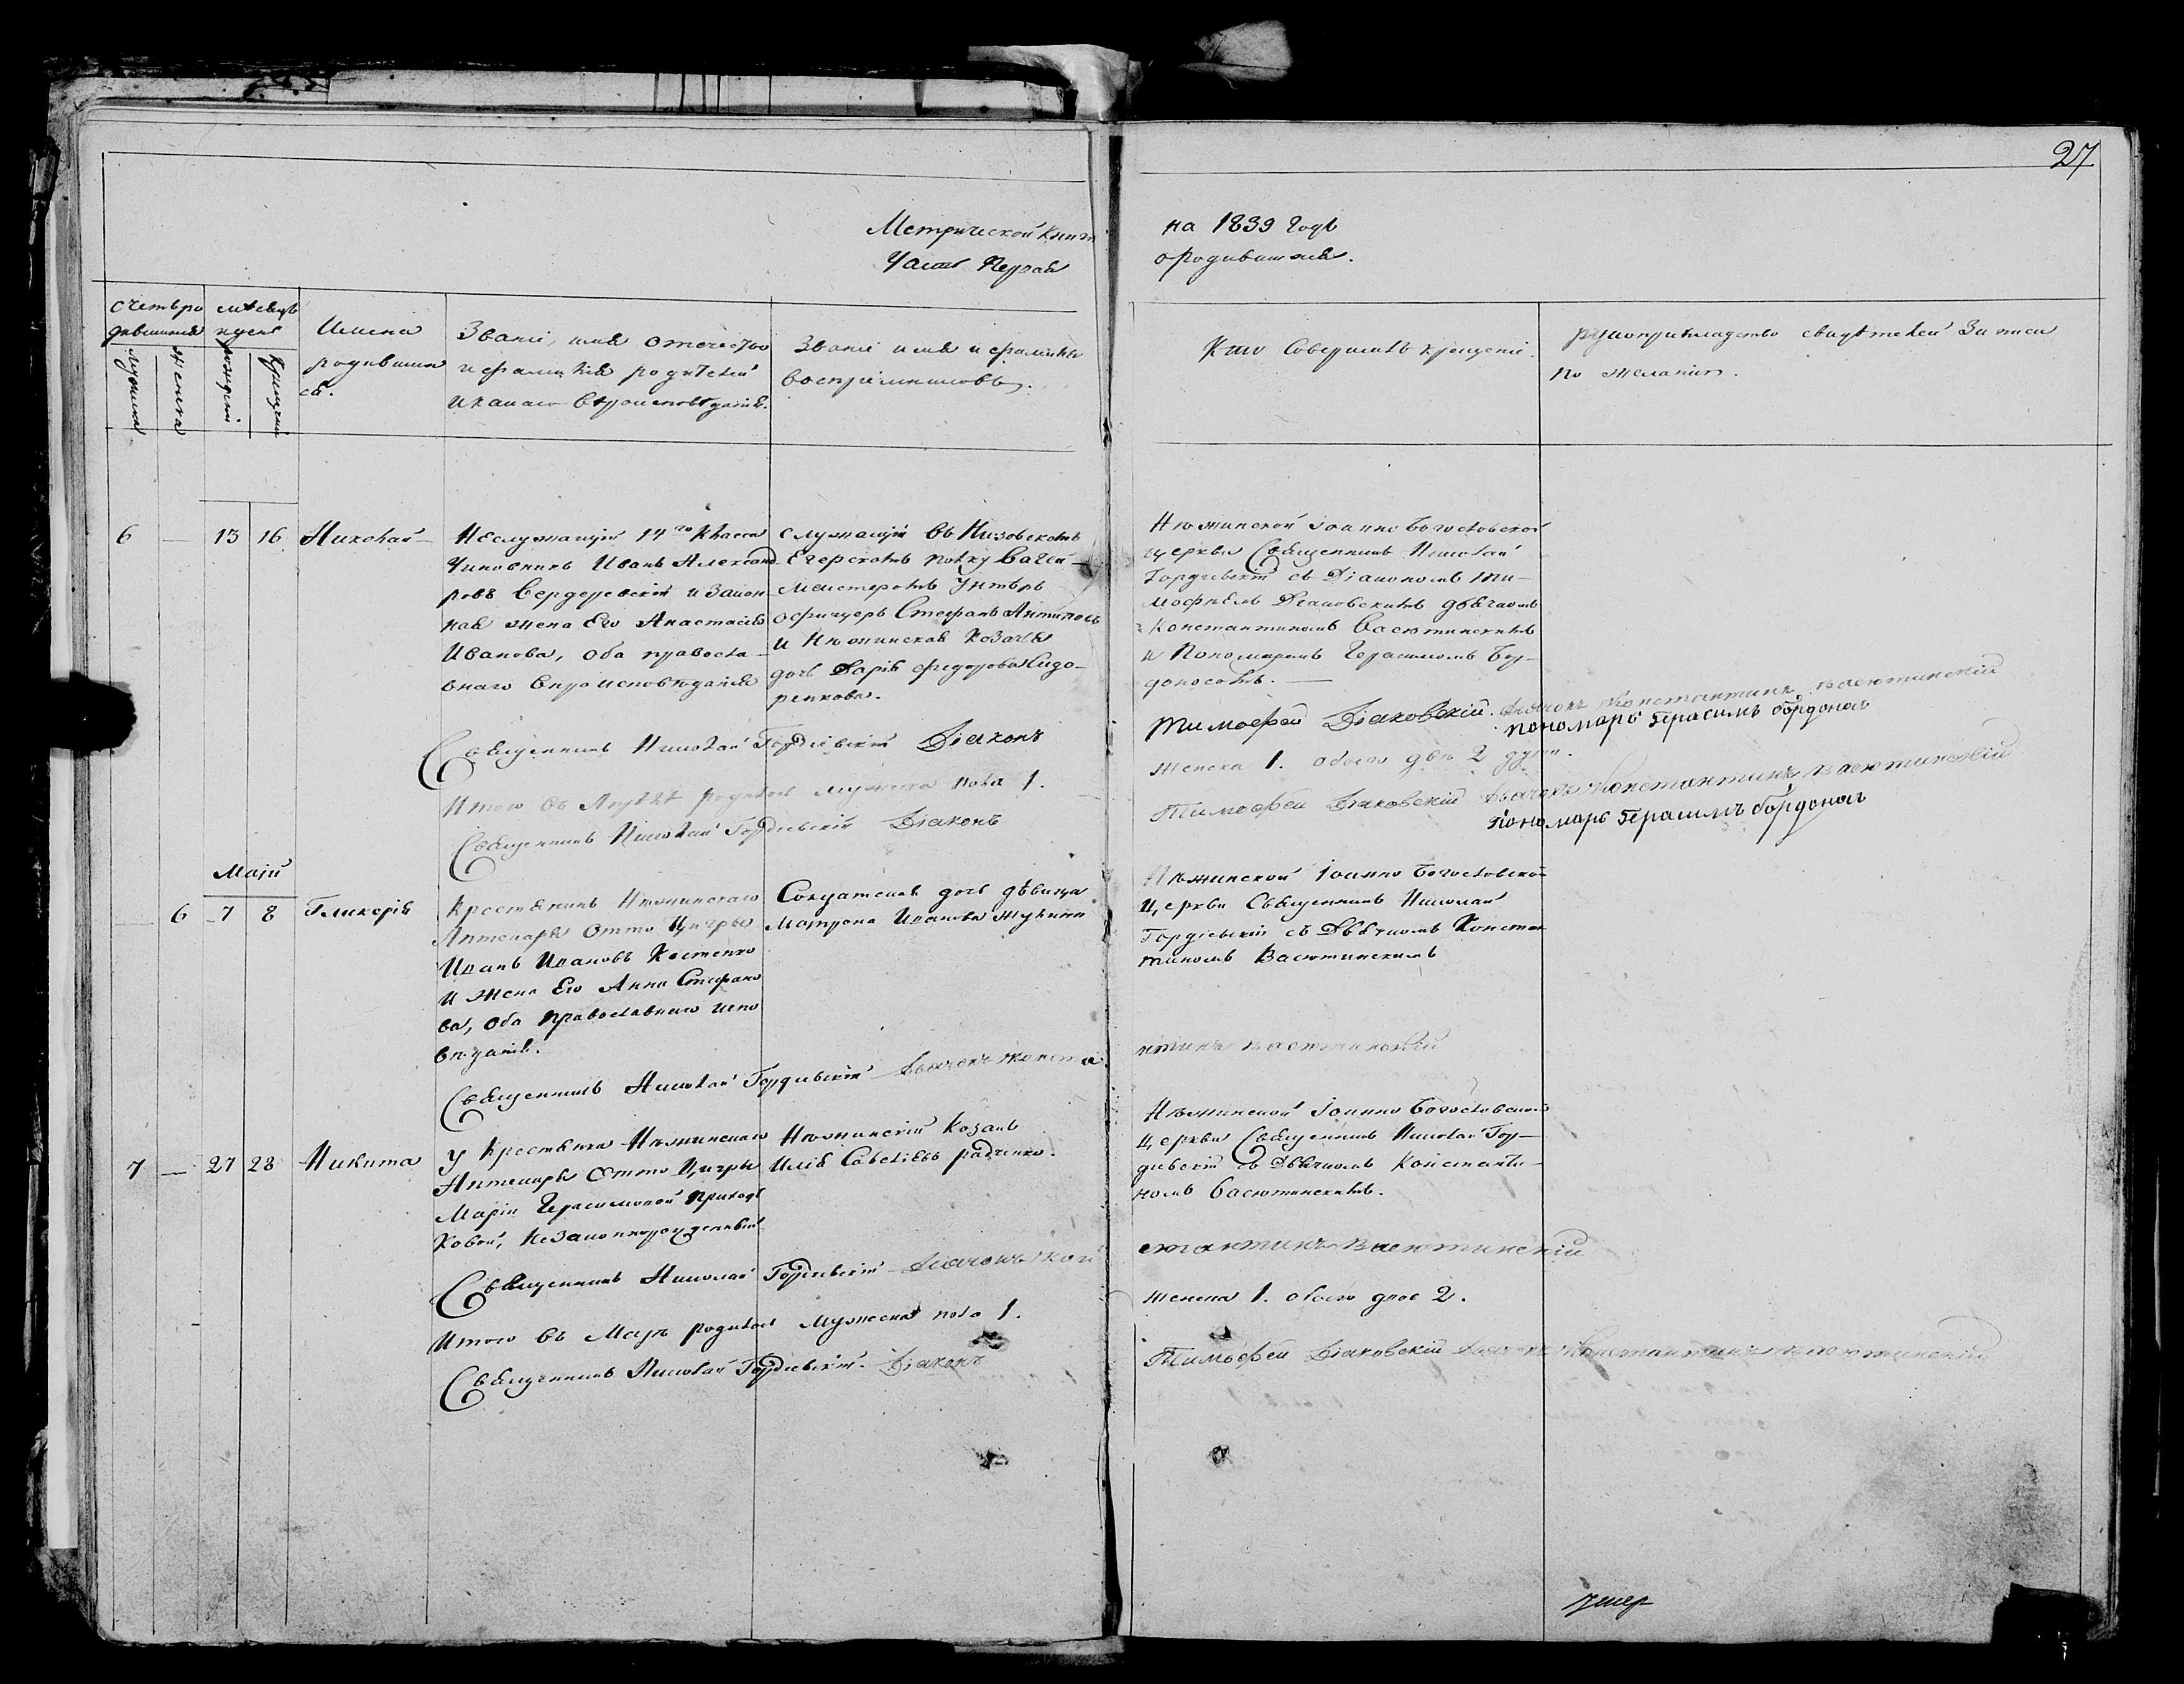 27
Метрической книги на 1839 Годъ
Часть Первая о родившихся.
счетъ ро
дившихся
мужеска
женска
мѣсяцъ
и день
рожденія
крещенія
Имена
родивших
ся.
Званіе, имя отечество
и фамилія родителей
и какаго вѣроисповѣданія.
Званіе имя и фамилія
воспріемниковъ.
Кто Совершалъ крещеніе.
рукоприкладство свидѣтелей Записи
по желанію.
6 — 13 16 Николай
Неслужащій 14го Класса
Чиновникъ Иванъ Александ
ровъ и Закон
ная жена Его Анастасія
Иванова, оба правосла-
внаго вѣроисповѣданія
служащій въ Низовскомъ
Егерскомъ полку Ваген-
мейстеромъ Унтеръ
офицеръ Стефанъ Антиповъ
и Нѣжинская Козачья
дочь Дарія Федорова Сидо-
ренкова.
Нѣжинской Іоанно Богословской
церкви Священникъ Николай
Гордіевскій съ Діакономъ Ти-
мофѣемъ Діаковскимъ дьячкомъ
Константиномъ Васютинскимъ
и Пономаремъ Герасимомъ Бор-
доносомъ. —
Священникъ Николай Гордіевскій Діаконъ
Тимофей Діаковскій. Дьячокъ Константинъ Васютинскій
пономарь Герасимъ бордонос
Итого въ Апрѣлѣ родилось мужеска пола 1.
женска 1. обоего двѣ 2 души.
Священникъ Николай Гордіевскій Діаконъ
Тимофей Діаковскій Дьячокъ Константинъ Васютинскій
Пономарь Герасимъ бордонос
Маій
6 7 8 Гликерія
Крестянинъ Нѣжинскаго
Аптекаря Отто Цигры
Иванъ Ивановъ Костенко
и Жена Его Анна Стефано
ва, оба православнаго испо
вѣданія.
Солдатская дочь дѣвица
Матрона Иванова
Нѣжинской Іоанно Богословской
Церкви Священникъ Николай
Гордіевскій съ Дьячкомъ Констан
тиномъ Васютинскимъ
Священникъ Николай Гордіевскій Дьячокъ Конста
нтинъ Васютинскій
7 — 27 28 Никита
у Крестянки Нѣжинскаго
Аптекаря Отто Цигры
Маріи Герасимовой Приход
ковой, незаконнорожденный
Нѣжинскій Козакъ
Илія Савеліевъ радченко.
Нѣжинской Іоанно Богословской
Церкви Священникъ Николай Гор-
діевскій съ Дьячкомъ Константи-
номъ Васютинскимъ.
Священникъ Николай Гордіевскій Дьячокъ Кон
стантинъ Васютинскій
Итого въ Маіѣ родилось Мужеска пола 1.
женска 1. обоего двое 2.
Священникъ Николай Гордіевскій. Діаконъ
Тимофей Діаковскій Дьячокъ Константинъ Васютинскій